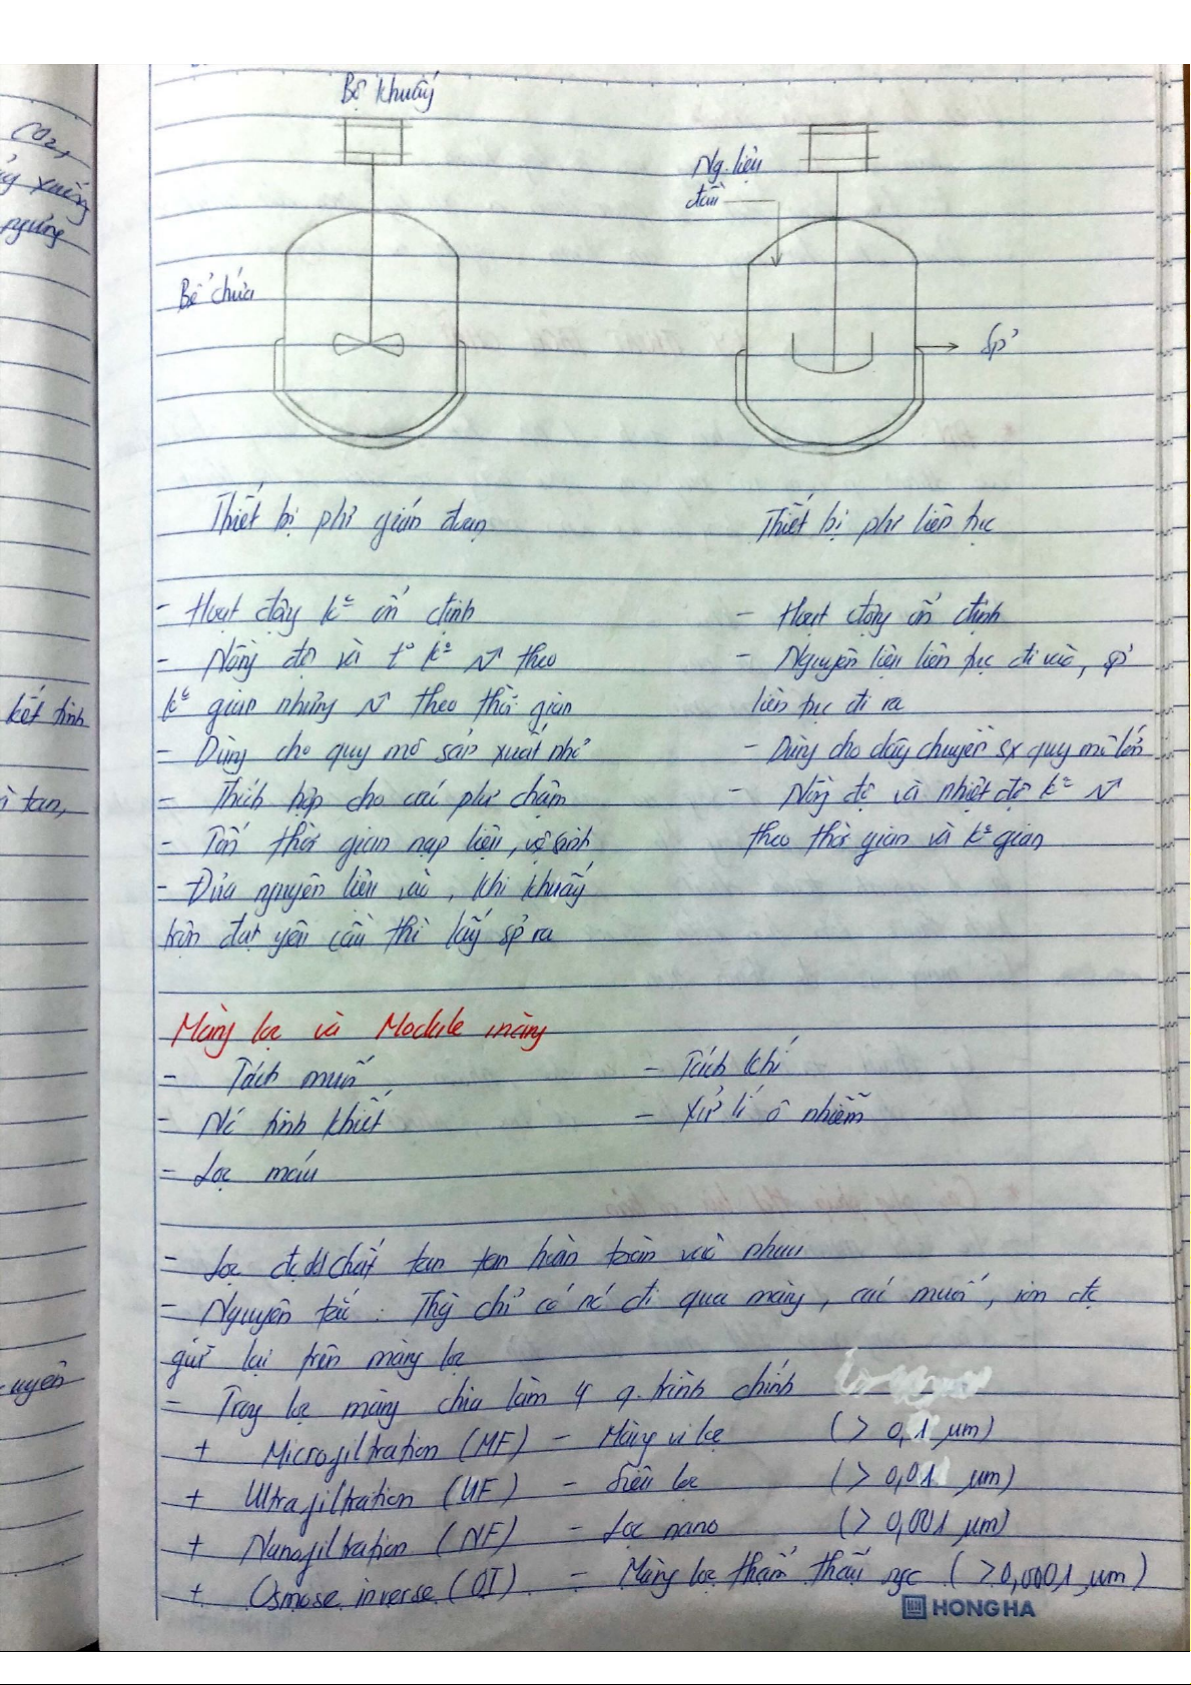 CO₂,
xuống
ngưng
kết tinh
tan,
uyên
Bộ khuấy
Ng. liệu
đầu
Bể chứa
Sp'
Thiết bị phứ gián đoạn
Thiết bị phứ liên tục
- Hoạt động k° ổn định
- Hoạt động ổn định
- Nồng độ và t° k° N theo
- Nguyên liệu liên tục đi vào, sp'
k° gian nhưng N theo thời gian
liên tục đi ra
- Dùng cho quy mô sản xuất nhỏ
- Dùng cho dây chuyền sx quy mô lớn
- Thích hợp cho các phứ chậm
- Nồng độ và nhiệt độ k° N
- Tốn thời gian nạp liệu, vệ sinh
theo thời gian và k° gian
- Đưa nguyên liệu vào, khi khuấy
trộn đạt yêu cầu thì lấy sp' ra
Màng lọc và Module màng
- Tách muối
- Tách khí
- Nc tinh khiết
- Xử lí ô nhiễm
- Lọc máu
- Lọc đc chất tan tan hoàn toàn vào nhau
- Nguyên tắc: Thg chỉ có nc đi qua màng, các muối, ion đc
giữ lại trên màng lọc
- Trong lọc màng chia làm 4 q. trình chính
+ Microfiltration (MF) - Màng vi lọc (> 0,1 μm)
+ Ultrafiltration (UF) - Siêu lọc (> 0,01 μm)
+ Nanofiltration (NF) - Lọc nano (> 0,001 μm)
+ Osmose inverse (OI) - Màng lọc thẩm thấu ngc (> 0,0001 μm)
HONG HA